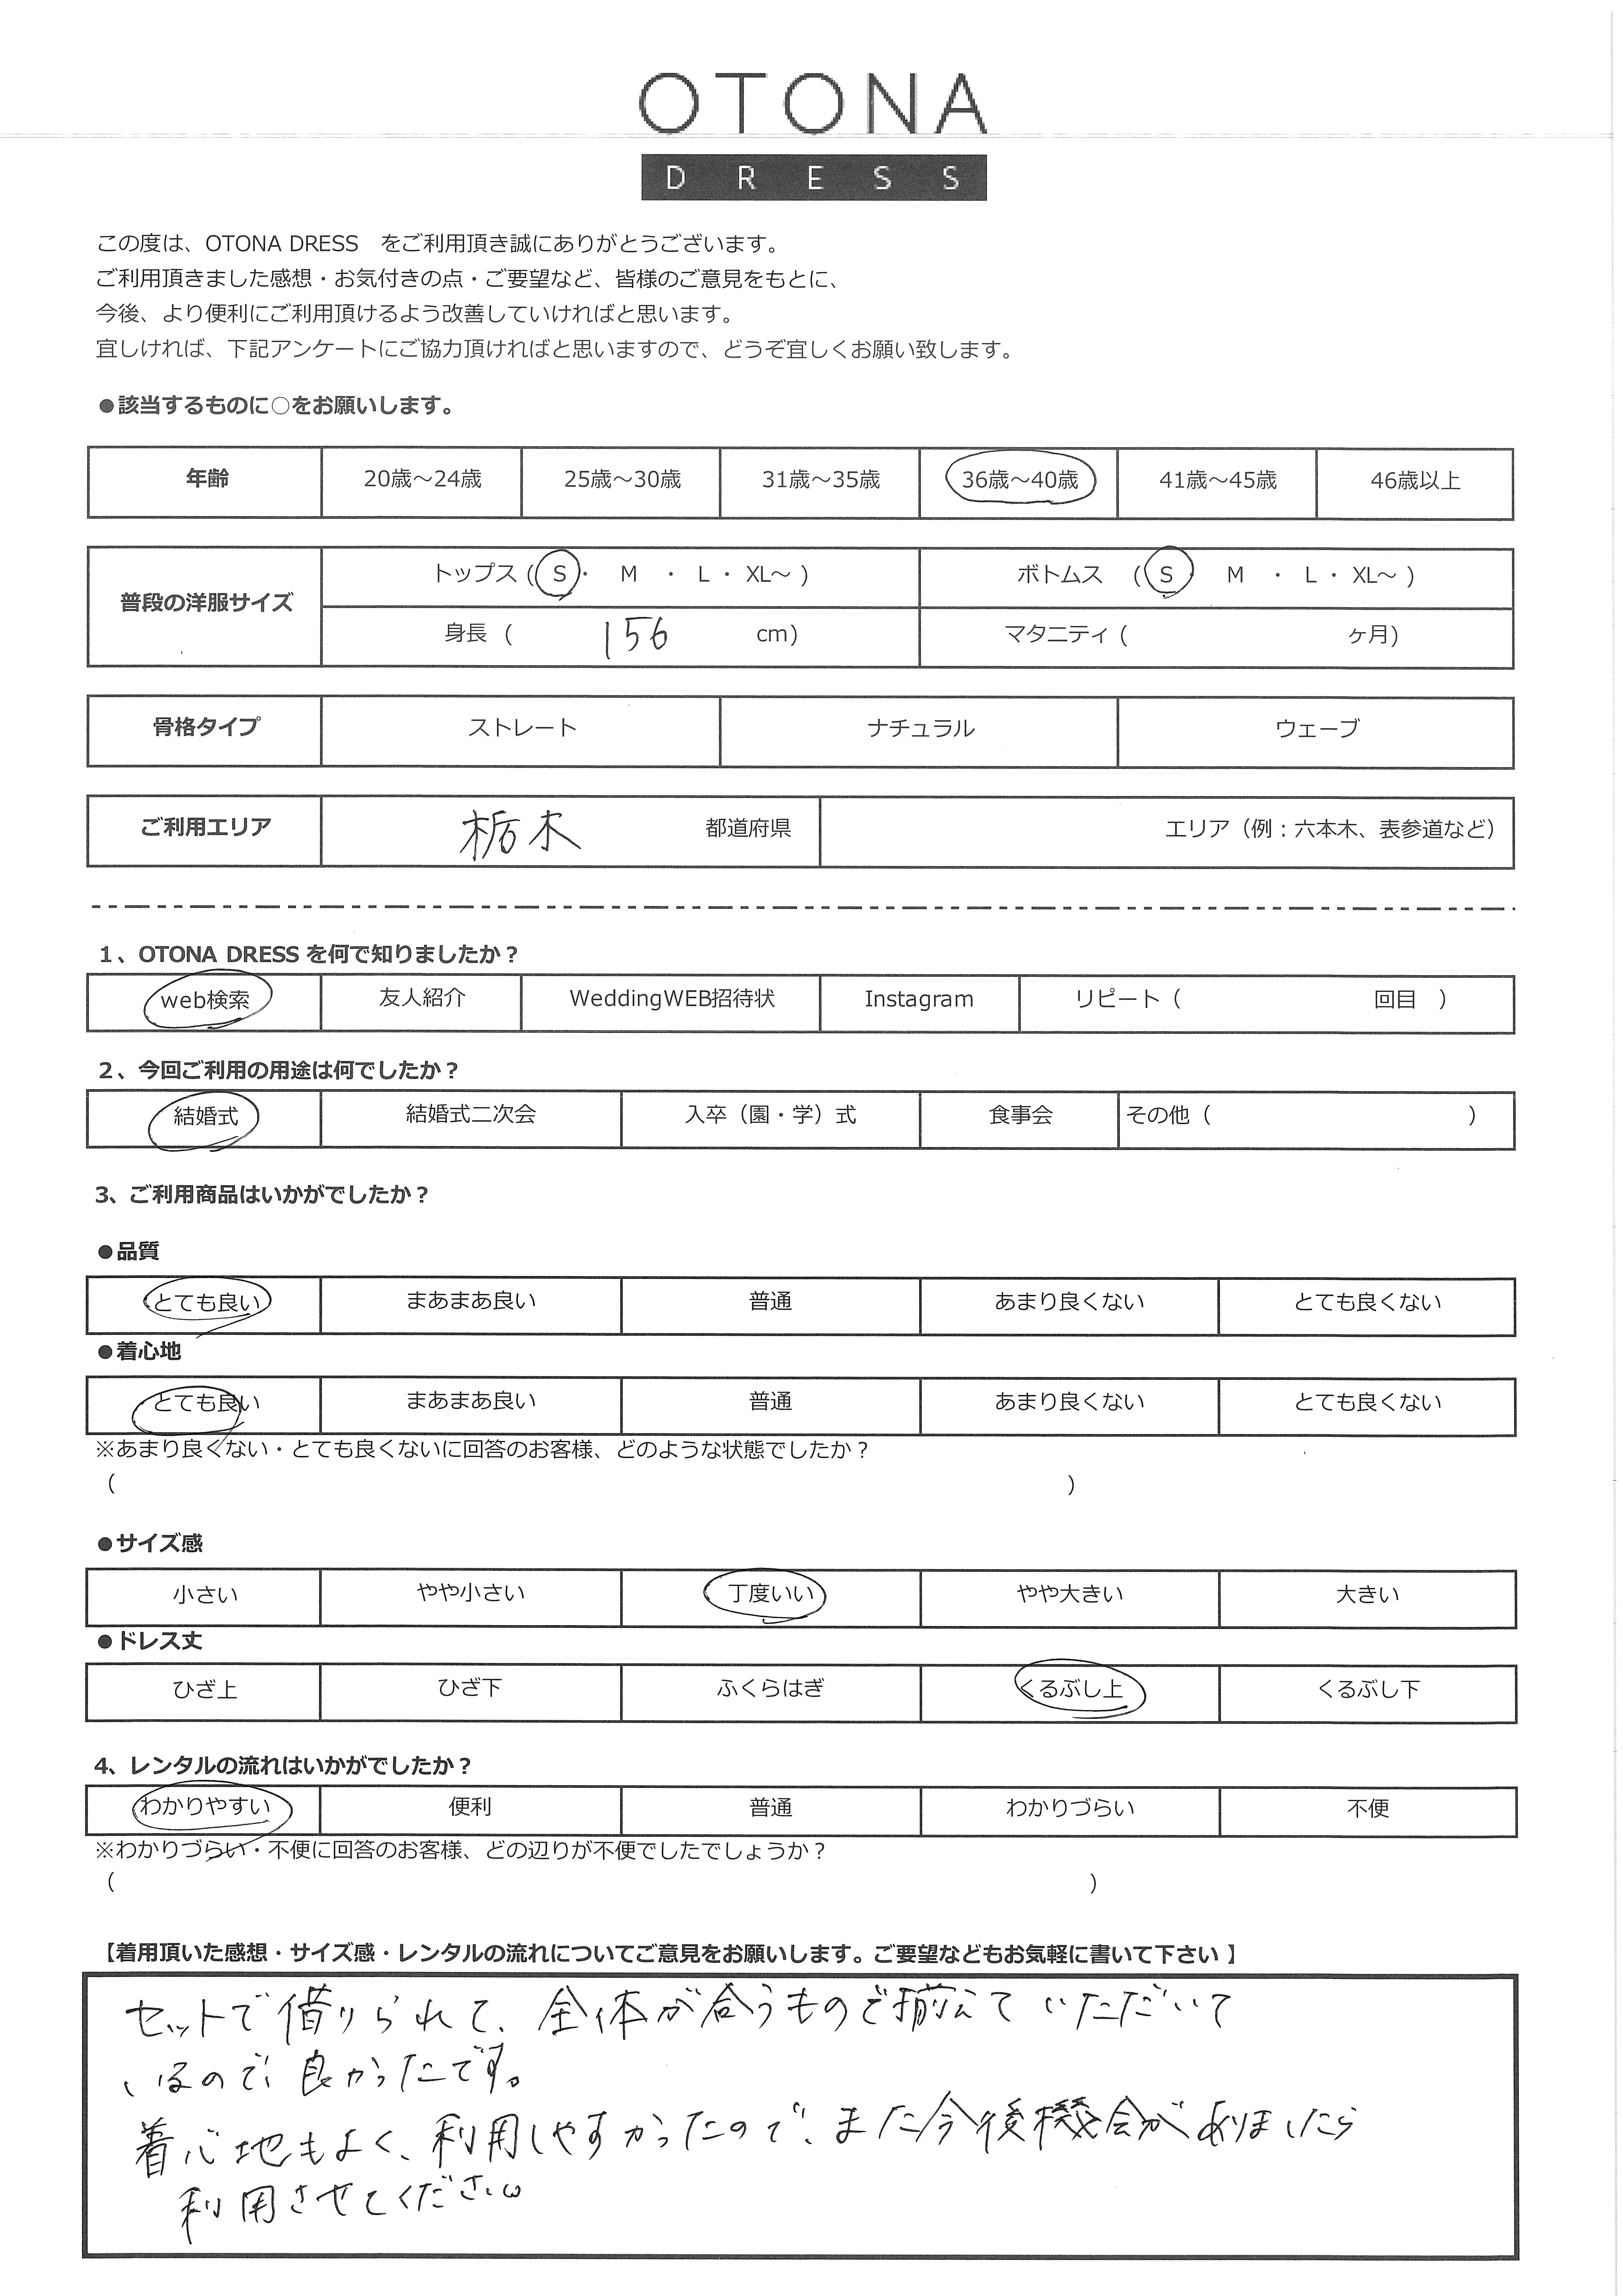 OTONA
DRESS
この度は、OTONA DRESS　をご利用頂き誠にありがとうございます。
ご利用頂きました感想・お気付きの点・ご要望など、皆様のご意見をもとに、
今後、より便利にご利用頂けるよう改善していければと思います。
宜しければ、下記アンケートにご協力頂ければと思いますので、どうぞ宜しくお願い致します。
●該当するものに○をお願いします。
年齢 20歳～24歳 25歳～30歳 31歳～35歳 36歳～40歳 41歳～45歳 46歳以上
普段の洋服サイズ
トップス (S・ M ・ L・ XL～ ) ボトムス ( S M ・ L・ XL～ )
身長 ( 156 cm) マタニティ ( ヶ月)
骨格タイプ ストレート ナチュラル ウェーブ
ご利用エリア 栃木 都道府県 エリア（例：六本木、表参道など）
1、OTONA DRESS を何で知りましたか？
web検索 友人紹介 WeddingWEB招待状 Instagram リピート（ 回目 ）
2、今回ご利用の用途は何でしたか？
結婚式 結婚式二次会 入卒（園・学）式 食事会 その他（ ）
3、ご利用商品はいかがでしたか？
●品質
とても良い まあまあ良い 普通 あまり良くない とても良くない
●着心地
とても良い まあまあ良い 普通 あまり良くない とても良くない
※あまり良くない・とても良くないに回答のお客様、どのような状態でしたか？
（ ）
●サイズ感
小さい やや小さい 丁度いい やや大きい 大きい
●ドレス丈
ひざ上 ひざ下 ふくらはぎ くるぶし上 くるぶし下
4、レンタルの流れはいかがでしたか？
わかりやすい 便利 普通 わかりづらい 不便
※わかりづらい・不便に回答のお客様、どの辺りが不便でしたでしょうか？
（ ）
【着用頂いた感想・サイズ感・レンタルの流れについてご意見をお願いします。ご要望などもお気軽に書いて下さい 】
セットで借りられて、全体が合うもので揃えていただいて
いるので、良かったです。
着心地もよく、利用しやすかったので、また今後機会がありましたら
利用させてください。